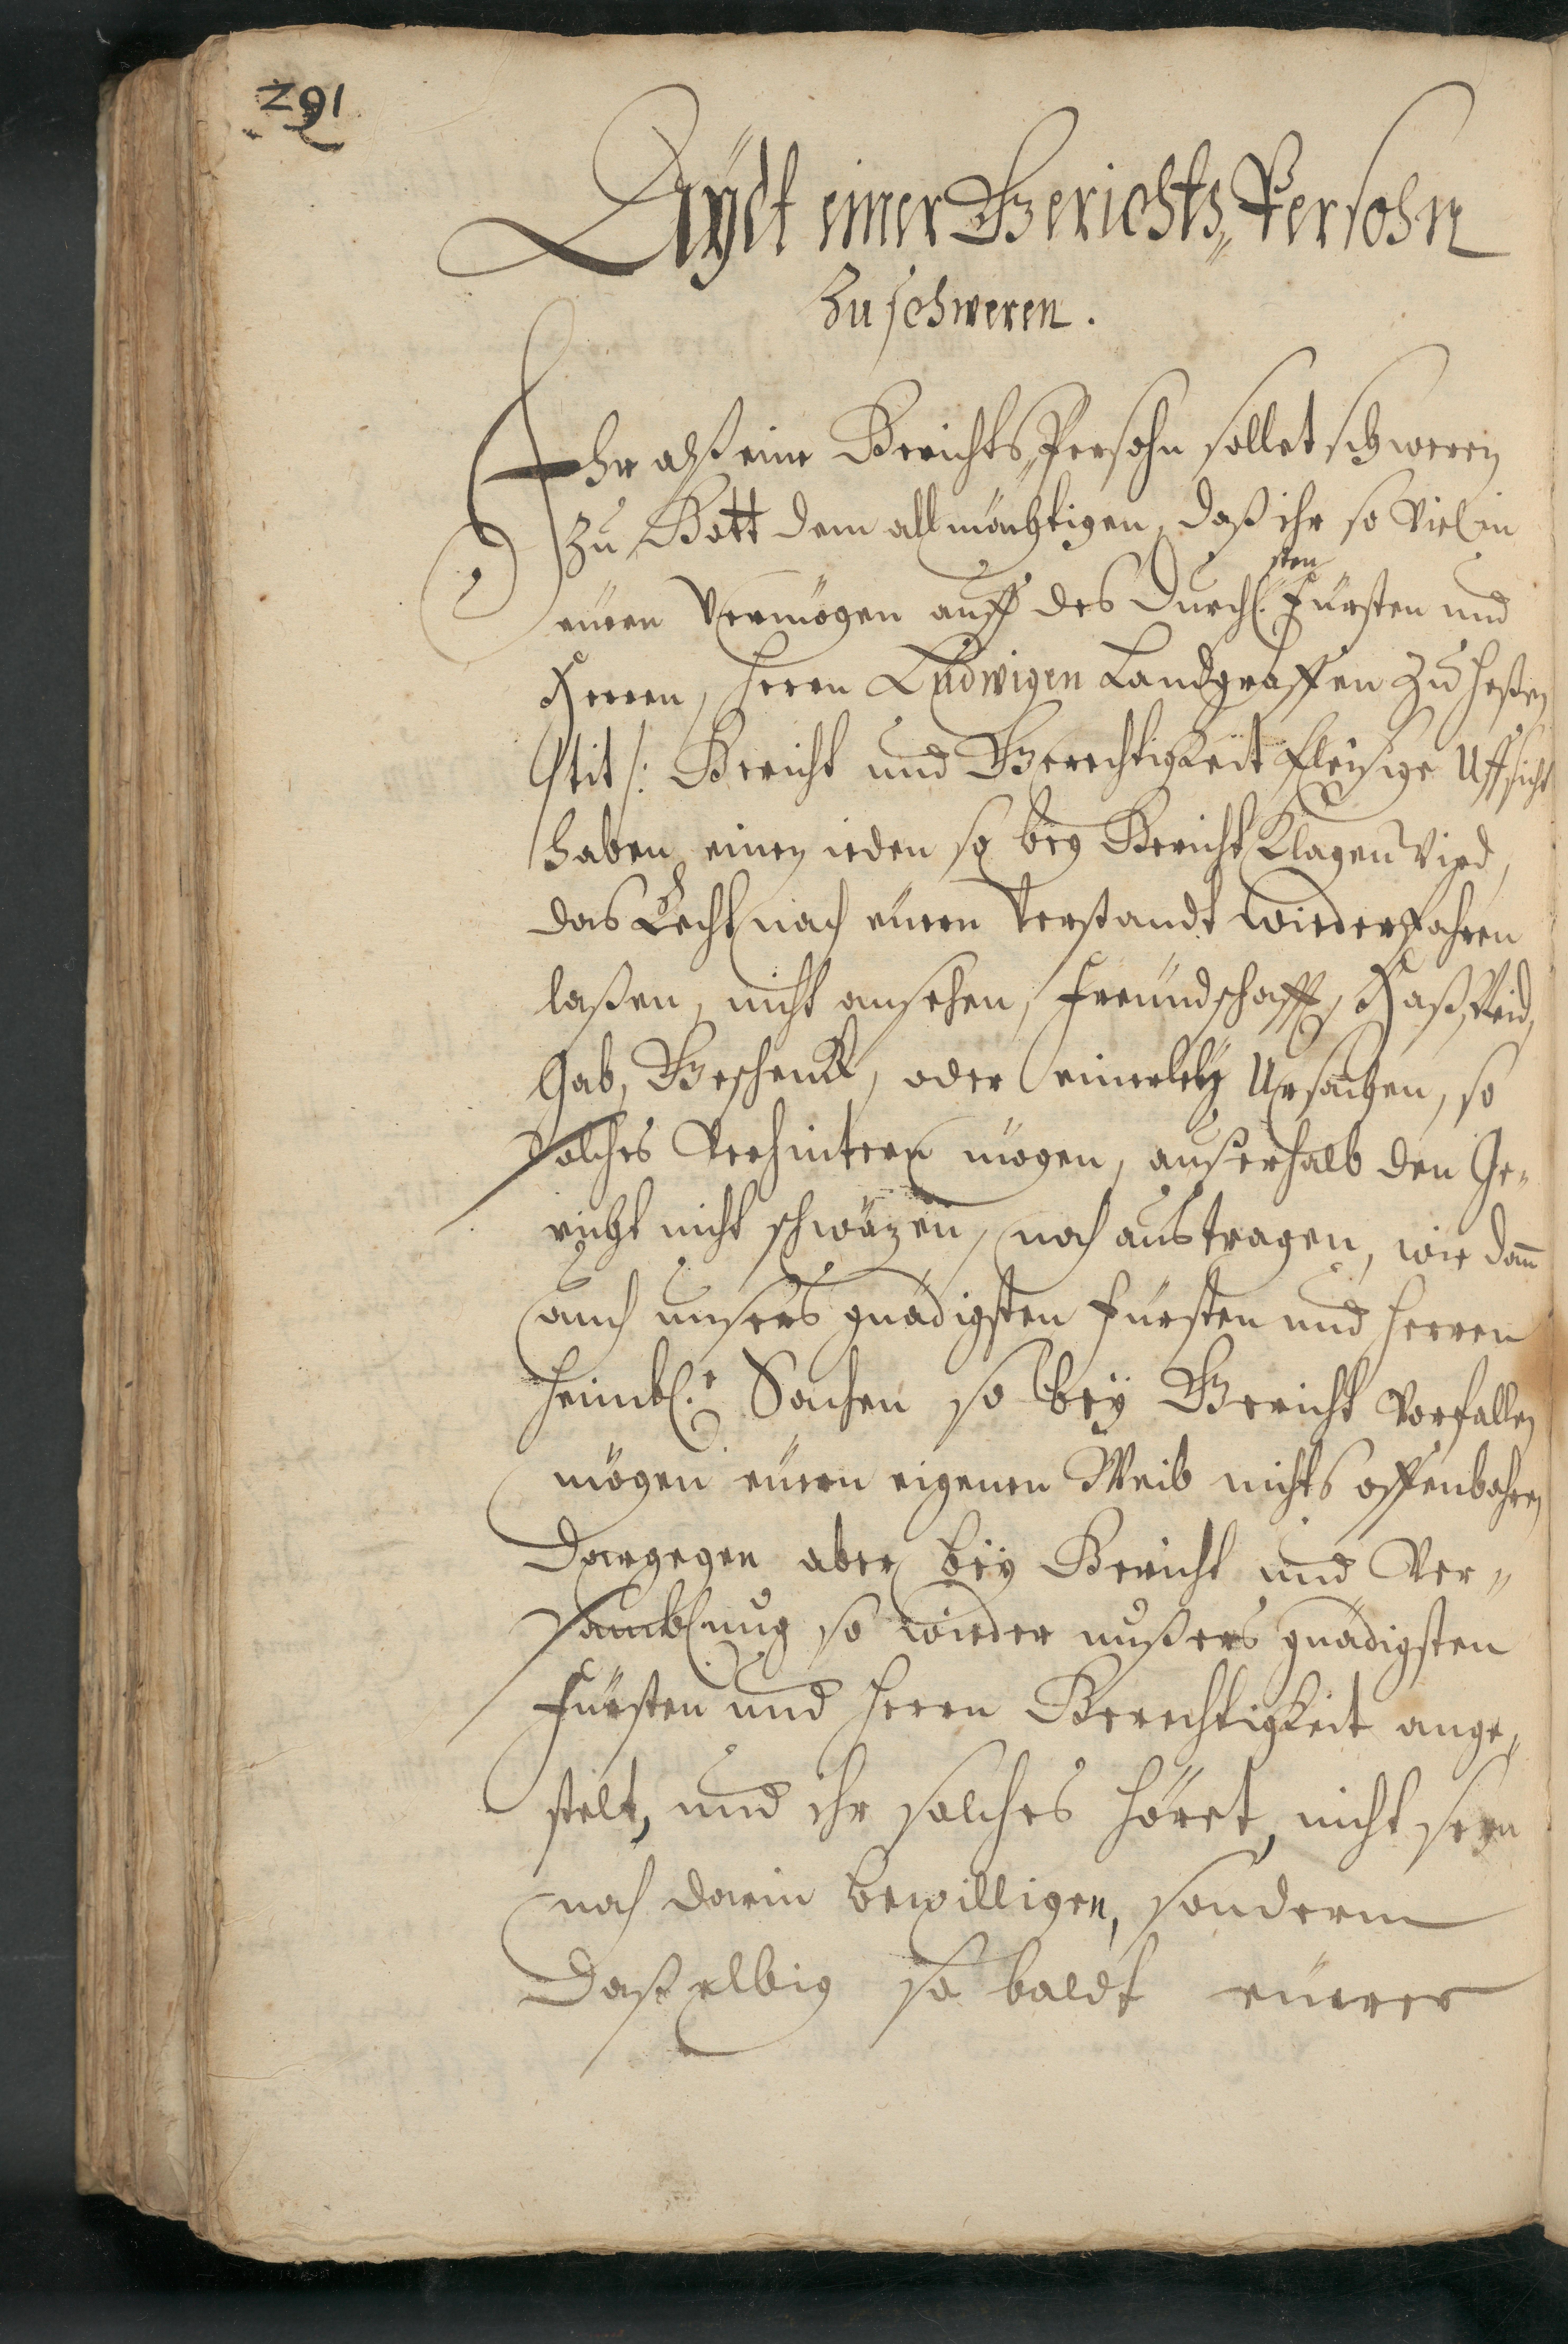 291
Aÿdt einer Gerichts„Persohn
Zu schweren.
Ihr alß eine Gerichts„Persohn sollet schweren
Zu Gott dem allmächtigen, daß ihr so Viel in
eüren Vermögen auff des Durchl.sten Fürsten und
Herren, Herrn Ludwigen Landgraffen Zu Heßen
/tit/: Gericht und Gerechtigkeit fleisige Uffsicht
haben, einen ieden so beÿ Gericht Klagen Vird,
das Recht nach eüren Verstandt wiederfahren
laßen, nicht ansehen, Freundschafft, Haß, Neid,
Gab, Geschenck, oder einerleÿ Ursachen, so
solches Verhintern mögen, auserhalb den Ge„
richt nicht schwäzen, noch austragen, wie dañ
auch unsers gnädigsten Fürsten und Herren
heimbl.e Sachen so beÿ Gericht Vorfallen
mögen eüren eigenen Weib nichts offenbahren
Dargegen aber beÿ Gericht und Ver„
samblung so wieder unßers gnädigsten
Fürsten und Herrn Gerechtigkeit ange„
stelt, und ihr solches höret, nicht seyn
noch darin bewilligen, sondern
Daßelbig so baldt eürer